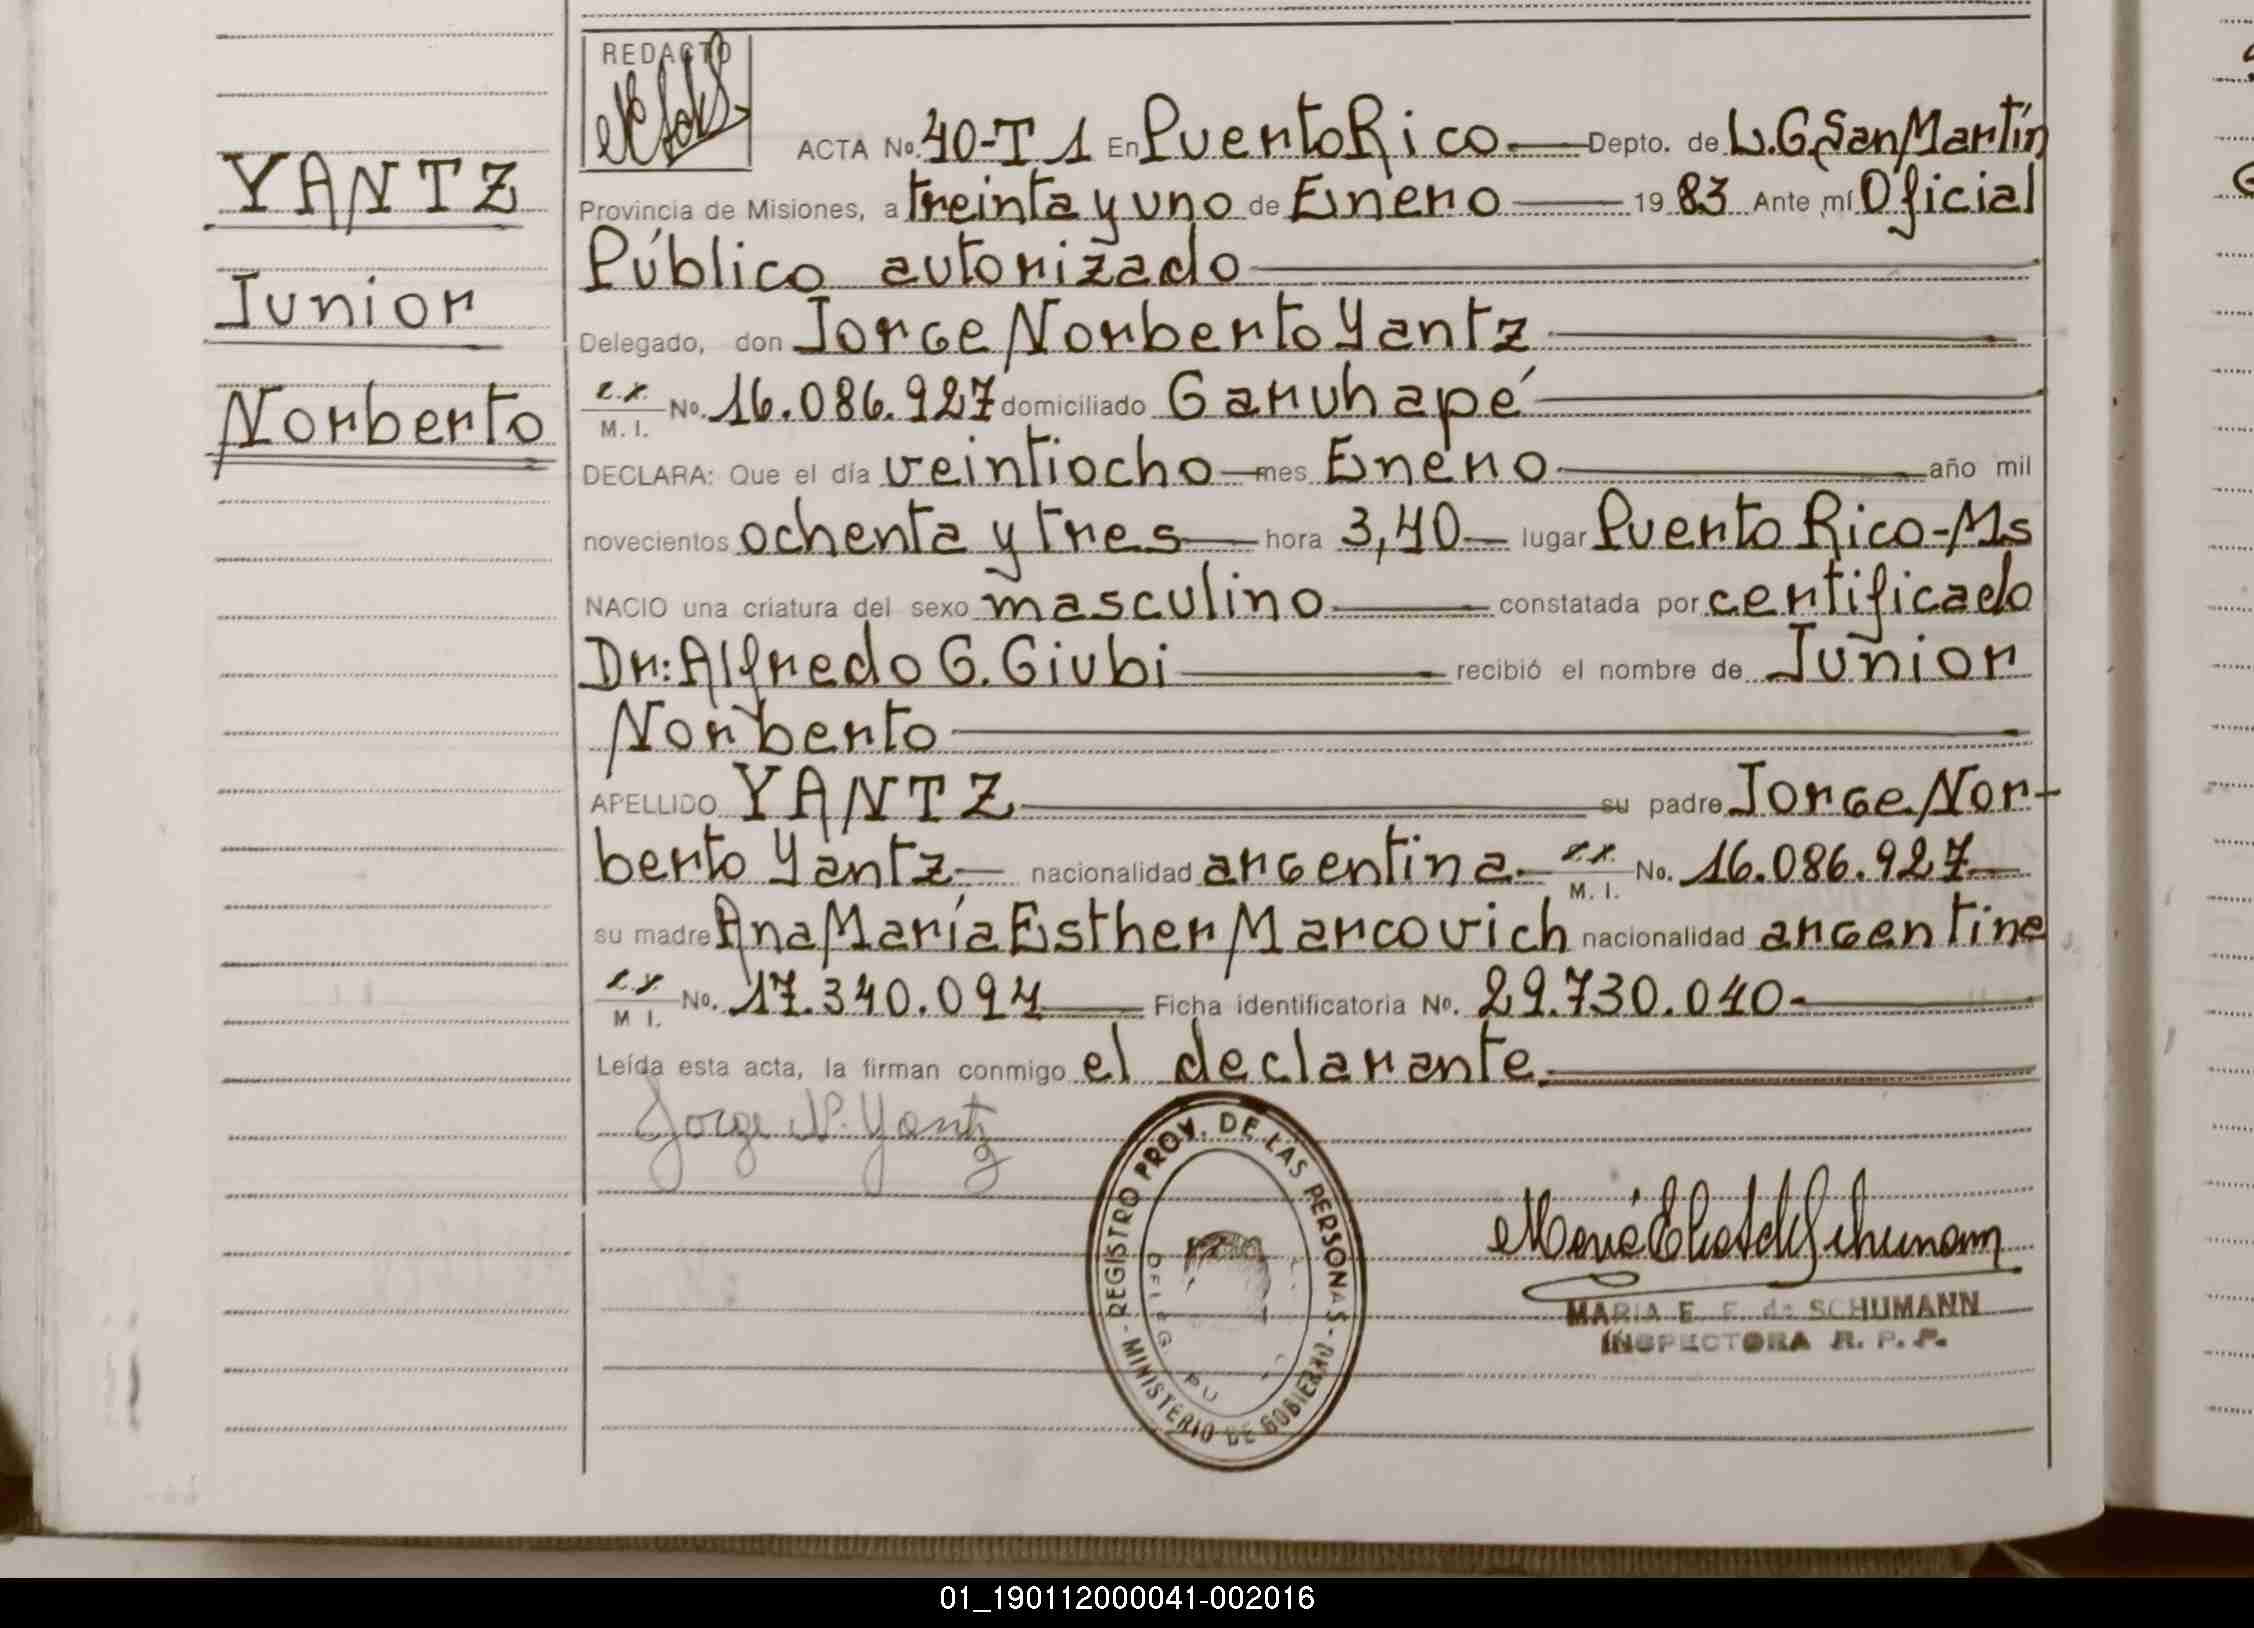 REDACTO
ACTA No. 40-T 1 En Puerto Rico Depto. de L.G.San Martín
YANTZ
Provincia de Misiones, a treinta y uno de Enero 1983 Ante mí Oficial
Público autorizado
Junior
Delegado, don Jorge Norberto Yantz
Norberto
M. I. No. 16.086.927 domiciliado Garuhapé
DECLARA: Que el día veintiocho mes Enero año mil
novecientos ochenta y tres hora 3,40 lugar Puerto Rico-Ms
NACIO una criatura del sexo masculino constatada por certificado
Dr: Alfredo G. Giubi recibió el nombre de Junior
Norberto
APELLIDO YANTZ su padre Jorge Nor-
berto Yantz nacionalidad argentina M. I. No. 16.086.927
su madre Ana María Esther Marcovich nacionalidad argentina
M I. No. 17.340.094 Ficha identificatoria No. 29.730.040
Leída esta acta, la firman conmigo el declarante.
Jorge N. Yantz
REGISTRO PROV. DE LAS PERSONAS - MINISTERIO DE GOBIERNO -
MARIA E. F. de SCHUMANN
INSPECTORA R. P. P.
01_190112000041-002016